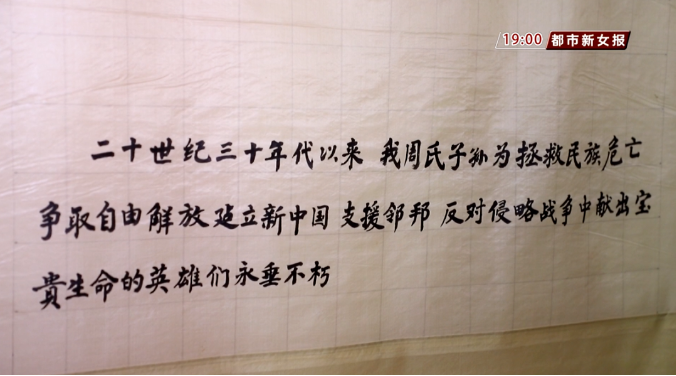 19:00 都市新女报
二十世纪三十年代以来 我周氏子孙为拯救民族危亡
争取自由解放建立新中国 支援邻邦 反对侵略战争中献出宝
貴生命的英雄们永垂不朽